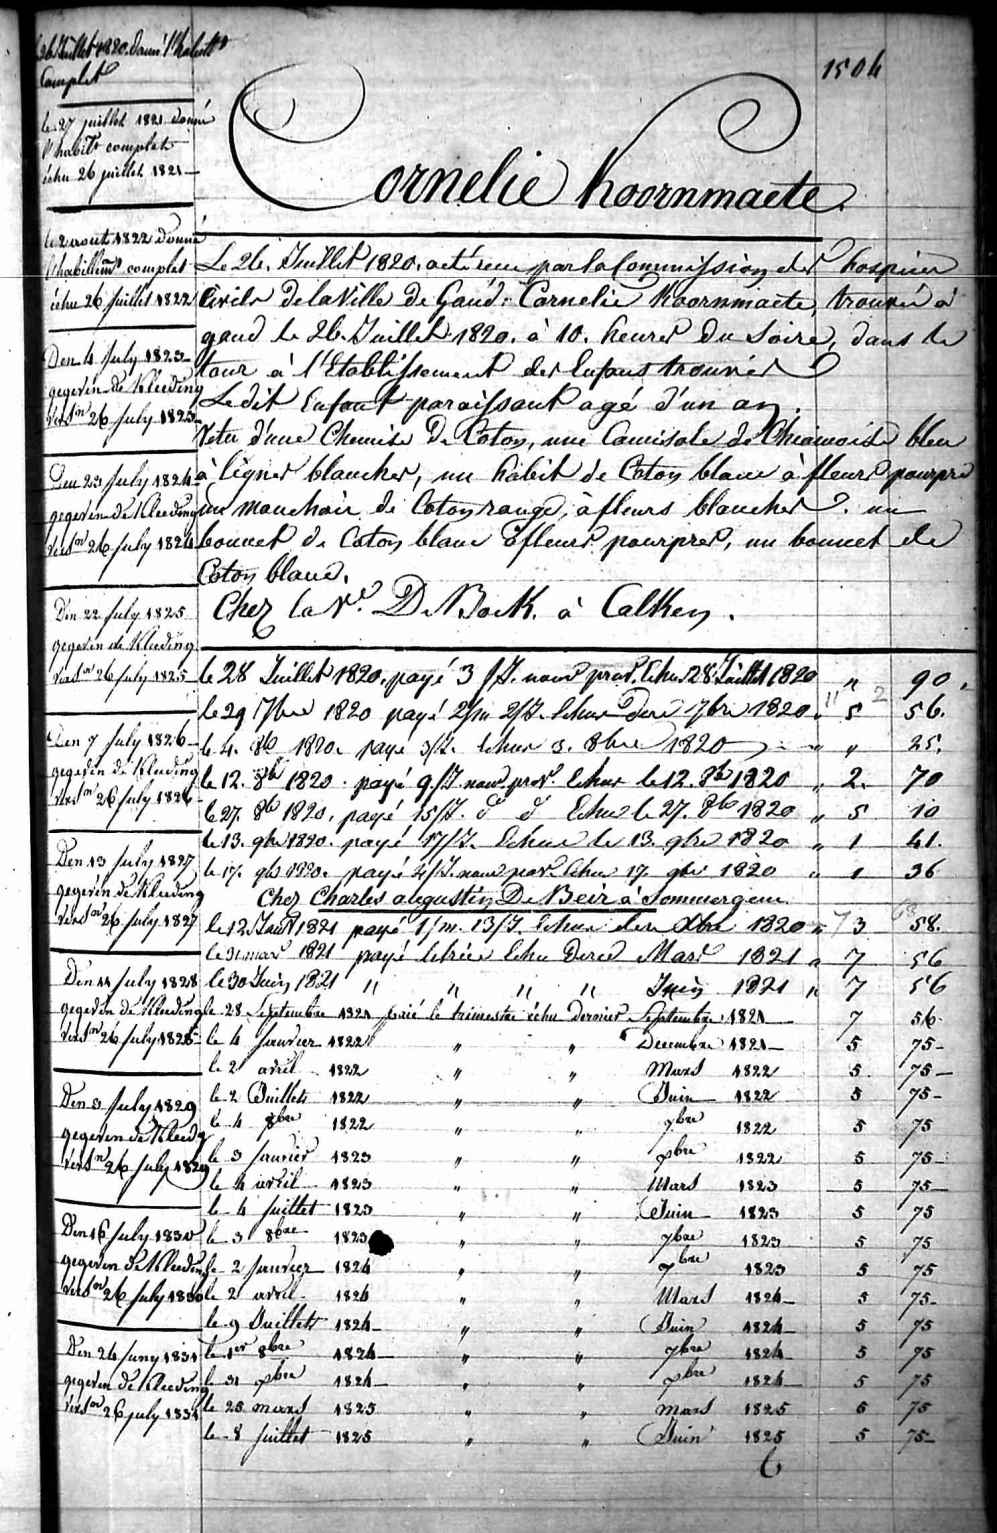 1504
Cornelie Koornmaete.
Le 26 Juillet 1820. a été reçu par la Commission des hospices
Civils de la Ville de Gand. Cornelie Koornmaete, trouvée à
gand le 26. Juillet 1820. à 10. heures du Soire, dans le
tour à l'Etablissement des Enfans trouvés
Ledit Enfant paraissant agé d'un an.
Vetu d'une Chemise De Coton, une Camisole de Chiamoise bleu
à lignes blanches, un habit de Coton blanc à fleurs pourpre
un mouchoir de Coton rouge, à fleurs blanches. un
bonnet de Coton blanc à fleurs pourpres, un bonnet de
Coton blanc.
Chez la Ve. De Bock. à Calken.
le 28 Juillet 1820. payé 3 prov. Echus 28 Juillet 1820 " 90.
le 29 7bre 1820 payé 2/m 2/J. Echus 7bre 1820 " 5 56.
le 4. 8b 1820. payé 3/J. Echus 3. 8bre 1820 " " 25.
le 12. 8b 1820. payé 9/J. prov. Echus le 12. 8b 1820 " 2. 70
le 27. 8b 1820. payé 15/J. d d Echus le 27. 8b 1820 " 5 10
le 13. 9bre 1820. payé 17/J. Echus le 13. 9bre 1820 " 1 41.
le 17. 9b 1820. payé 4/J. Echus 17. 9bre 1820 " 1 36
Chez Charles augustin De Beir à Sommergem
le 12 Janv 1821 payé 1/m. 13/J. Echus Xbre 1820 " 3 58.
le 31 mar 1821 payé Echu Mars 1821 " 7 56
le 30 Juin 1821 " " " " Juin 1821 " 7 56
le 28 Septembre 1821 paié le trimestre échu dernier Septembre 1821 7 56
le 4 Janvier 1822 " " Decembre 1821 5 75
le 2 avril 1822 " " Mars 1822 5 75
le 2 Juillets 1822 " " Juin 1822 5 75
le 4 8bre 1822 " " 7bre 1822 5 75
le 3 Janvier 1823 " " Xbre 1822 5 75
le 4 avril 1823 " " Mars 1823 5 75
le 4 Juillet 1823 " " Juin 1823 5 75
le 3 8bre 1823 " " 7bre 1823 5 75
le 2 Janvier 1824 " " 1823 5 75
le 2 avril 1824 " " Mars 1824 5 75
le 9 Juillets 1824 " " Juin 1824 5 75
le 1er 8bre 1824 " " 7bre 1824 5 75
le 31 Xbre 1824 " " Xbre 1824 5 75
le 25 mars 1825 " " Mars 1825 5 75
le 8 Juillet 1825 " " Juin 1825 5 75
le 26 Juillet 1820. donné l'habillt
Complet
le 27 juillet 1821 donné
l'habilt complet
échu 26 juillet 1821
le 2 aout 1822 donné
l'habillemt complet
échu 26 juillet 1822
Den 4 July 1823
gegeven de Kleeding
26 July 1823
Den 23 July 1824
gegeven de Kleeding
26 July 1824
Den 22 July 1825
gegeven de Kleeding
26 July 1825
Den 7 July 1826
gegeven de Kleeding
26 July 1826
Den 13 July 1827
gegeven de Kleeding
26 July 1827
Den 11 July 1828
gegeven de Kleeding
26 July 1828
Den 3 July 1829
gegeven de Kleedg
26 July 1829
Den 16 July 1830
gegeven de Kleeding
26 July 1830
Den 24 Juny 1831
gegeven de Kleeding
26 july 1831